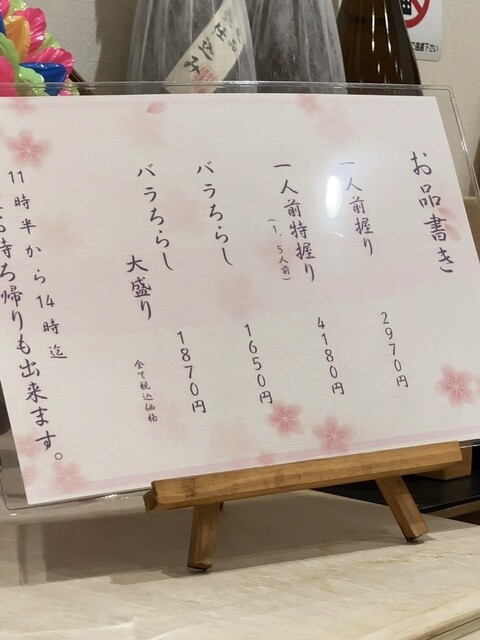 お品書き
一人前握り 2970円
一人前特握り (1.5人前) 4180円
バラちらし 1650円
バラちらし 大盛り 1870円
全て税込価格
11時半から14時迄
お持ち帰りも出来ます。
仕込み